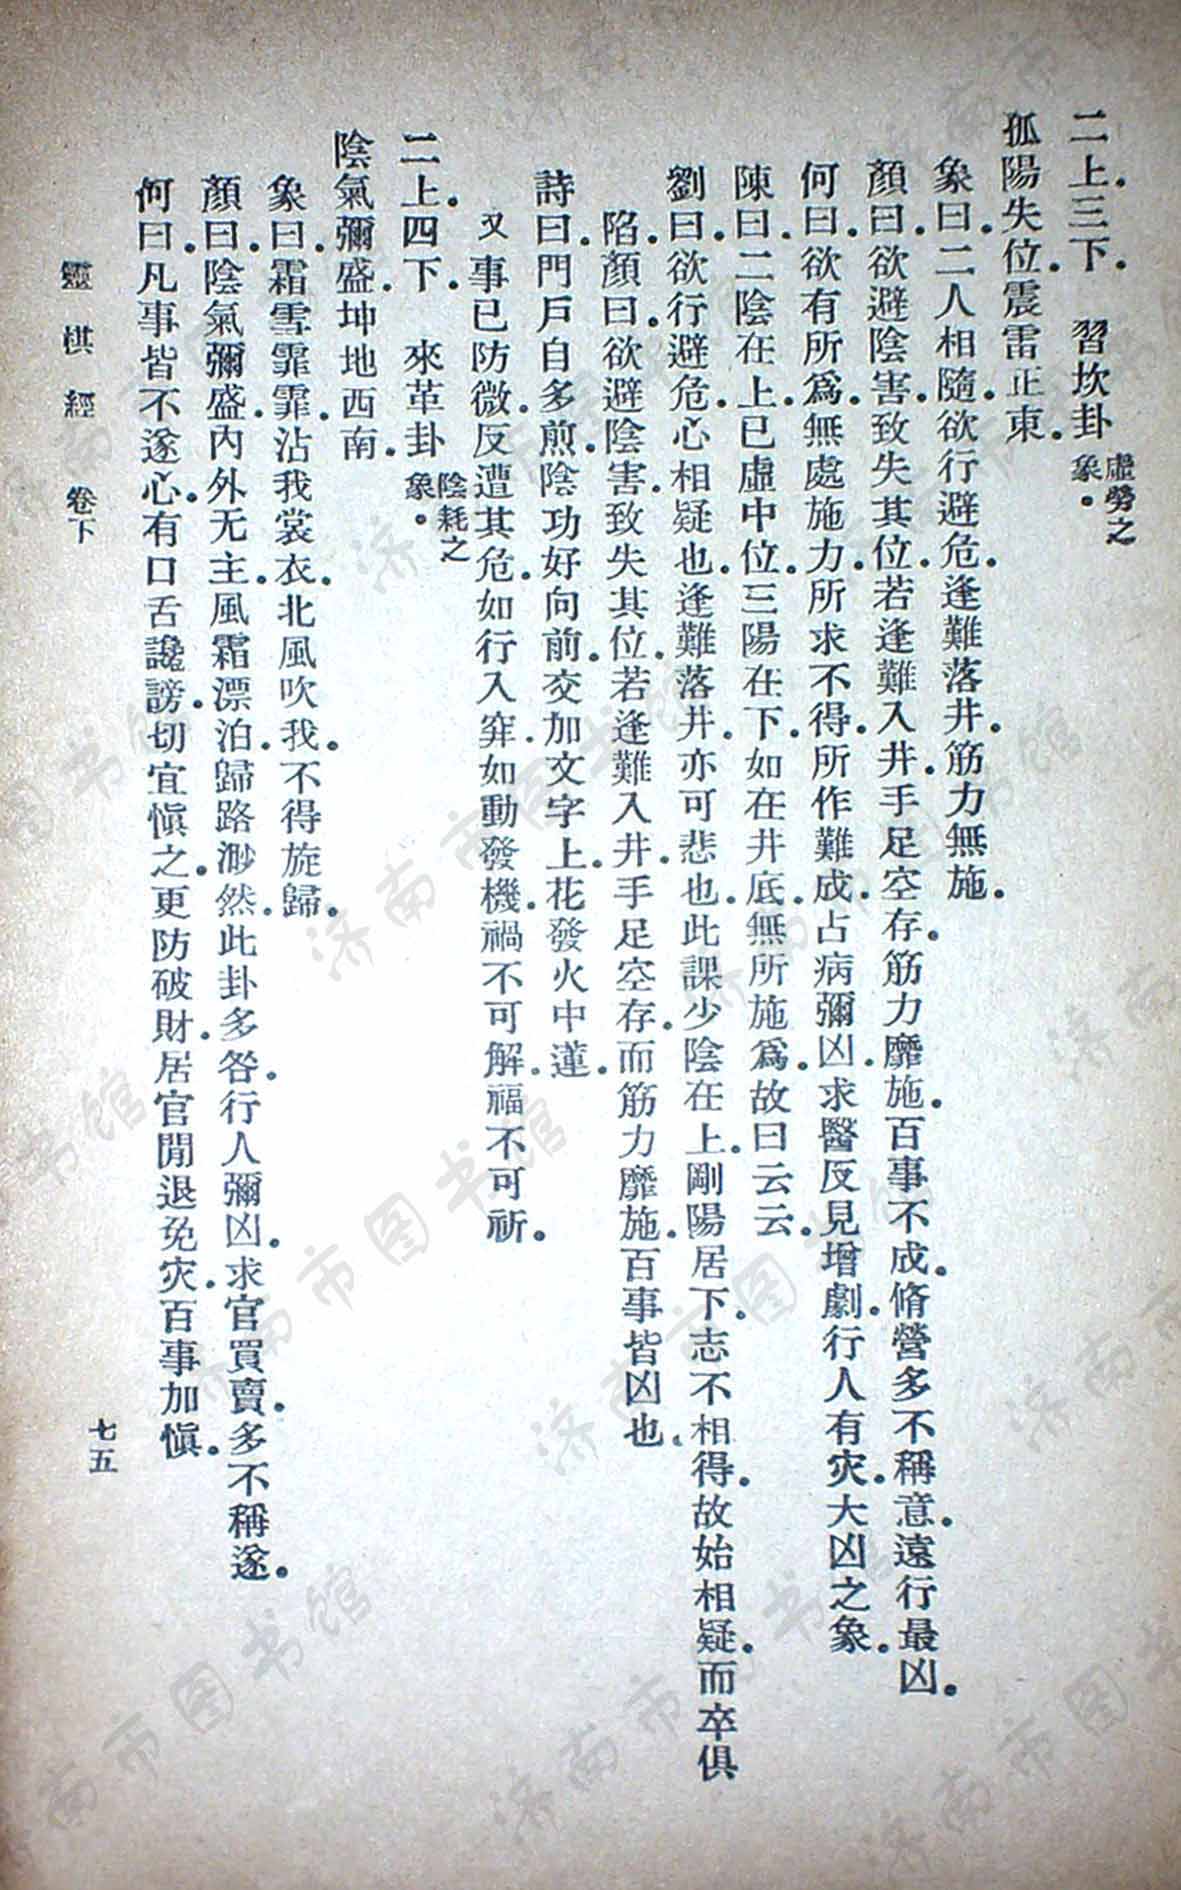 二上。三下。　習坎卦　虛勞之象。
孤陽失位。震雷正東。
象曰。二人相隨。欲行避危。逢難落井。筋力無施。
顏曰。欲避陰害。致失其位。若逢難入井。手足空存。筋力靡施。百事不成。脩營多不稱意。遠行最凶。
何曰。欲有所爲。無處施力。所求不得。所作難成。占病彌凶。求醫反見增劇。行人有灾。大凶之象。
陳曰。二陰在上。已虛中位。三陽在下。如在井底。無所施爲。故曰云云。
劉曰。欲行避危。心相疑也。逢難落井。亦可悲也。此課少陰在上。剛陽居下。志不相得。故始相疑。而卒俱
陷。顏曰。欲避陰害。致失其位。若逢難入井。手足空存。而筋力靡施。百事皆凶也。
詩曰。門戶自多煎。陰功好向前。交加文字上。花發火中蓮。
又　事已防微。反遭其危。如行入穽。如動發機。禍不可解。福不可祈。
二上。四下。　來革卦　陰耗之象。
陰氣彌盛。坤地西南。
象曰。霜雪霏霏。沾我裳衣。北風吹我。不得旋歸。
顏曰。陰氣彌盛。內外无主。風霜漂泊。歸路渺然。此卦多咎。行人彌凶。求官買賣。多不稱遂。
何曰。凡事皆不遂心。有口舌讒謗。切宜慎之。更防破財。居官閒退免灾。百事加愼。
靈棋經　卷下　七五
济南市图书馆